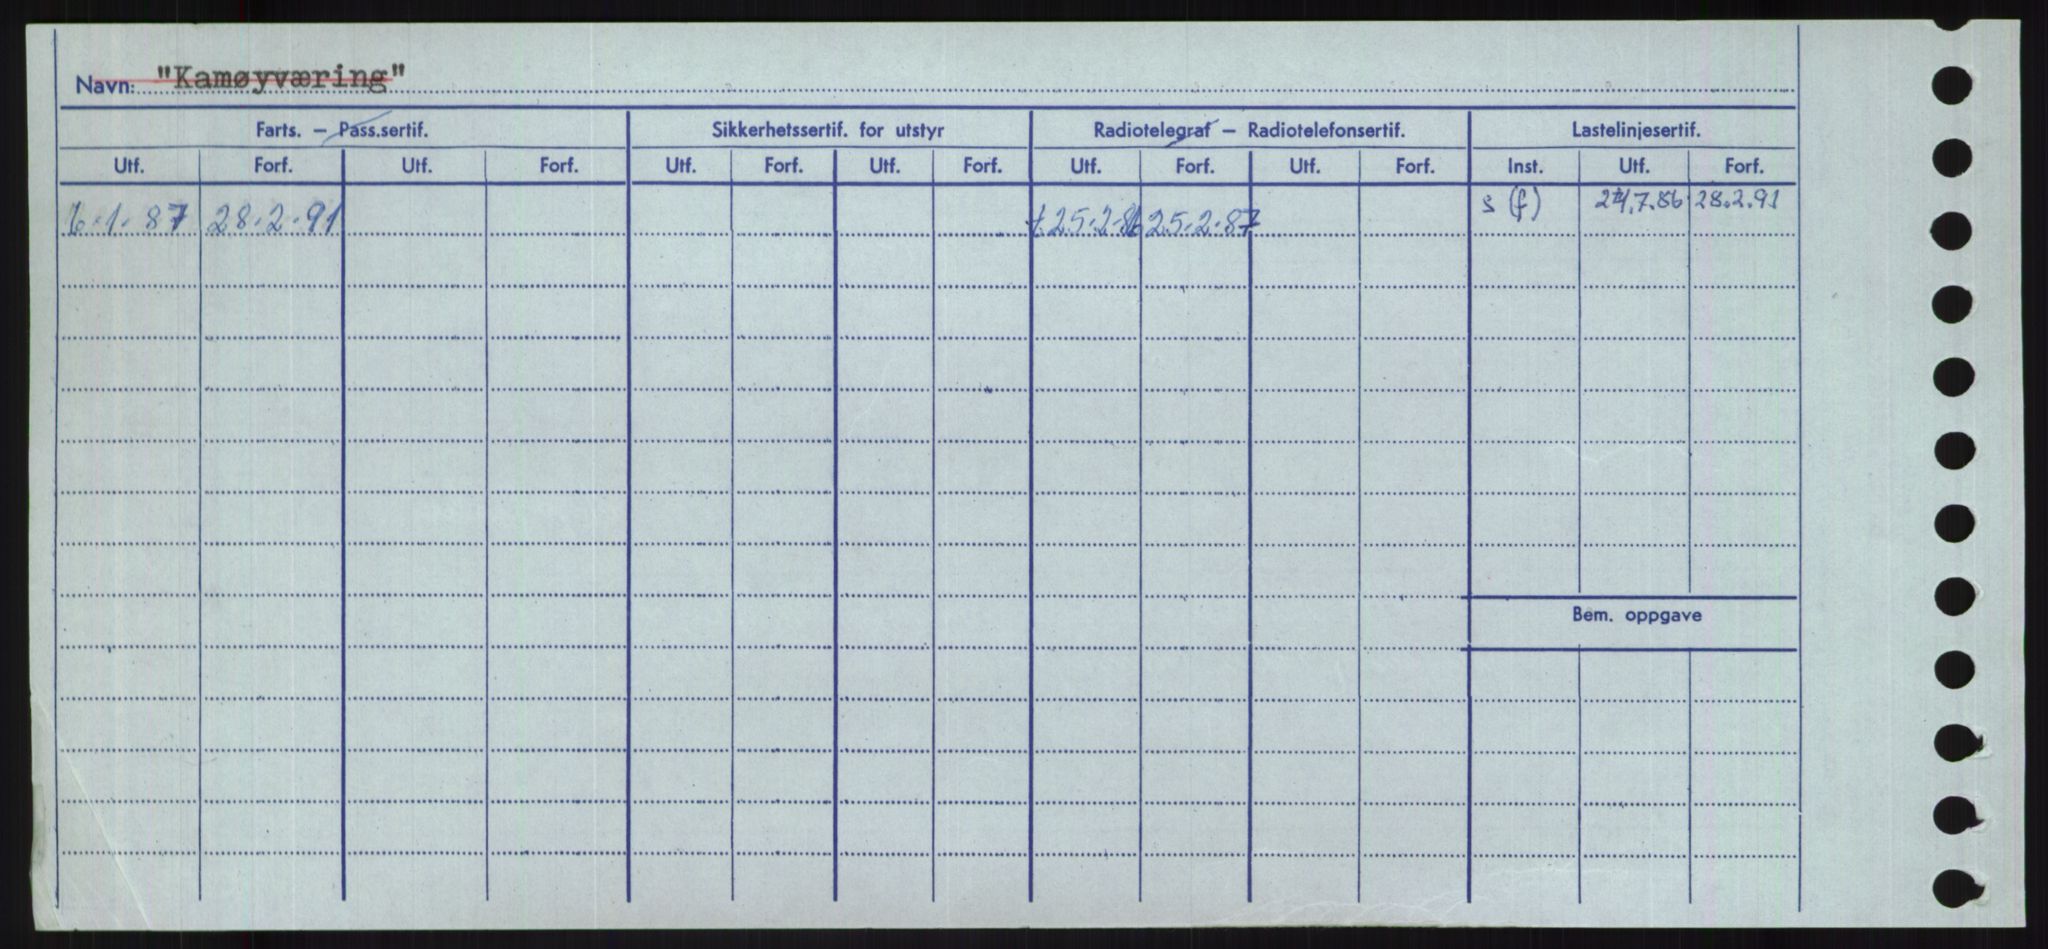 Navn: "Kamøyværing"
Farts. – Pass.sertif. Sikkerhetssertif. for utstyr Radiotelegraf – Radiotelefonsertif. Lastelinjesertif.
Utf. Forf. Utf. Forf. Utf. Forf. Utf. Forf. Utf. Forf. Utf. Forf. Inst. Utf. Forf.
s (f) 28.2.91
6.1.87 28.2.91 t 25.2.86 25.2.87
Bem. oppgave